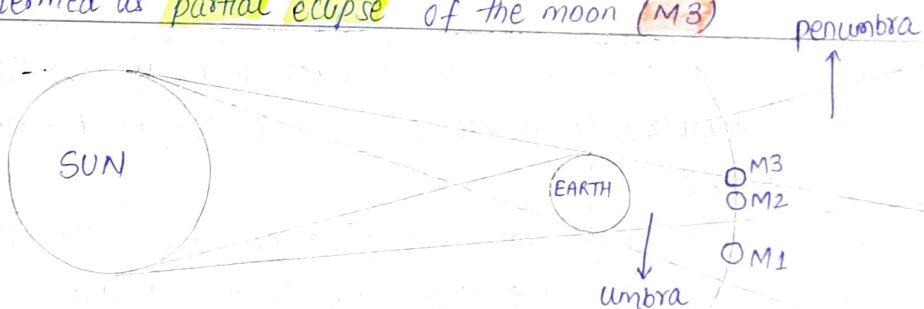 termed as partial eclipse of the moon (M3)
penumbra
SUN
EARTH
M3
M2
M1
Umbra